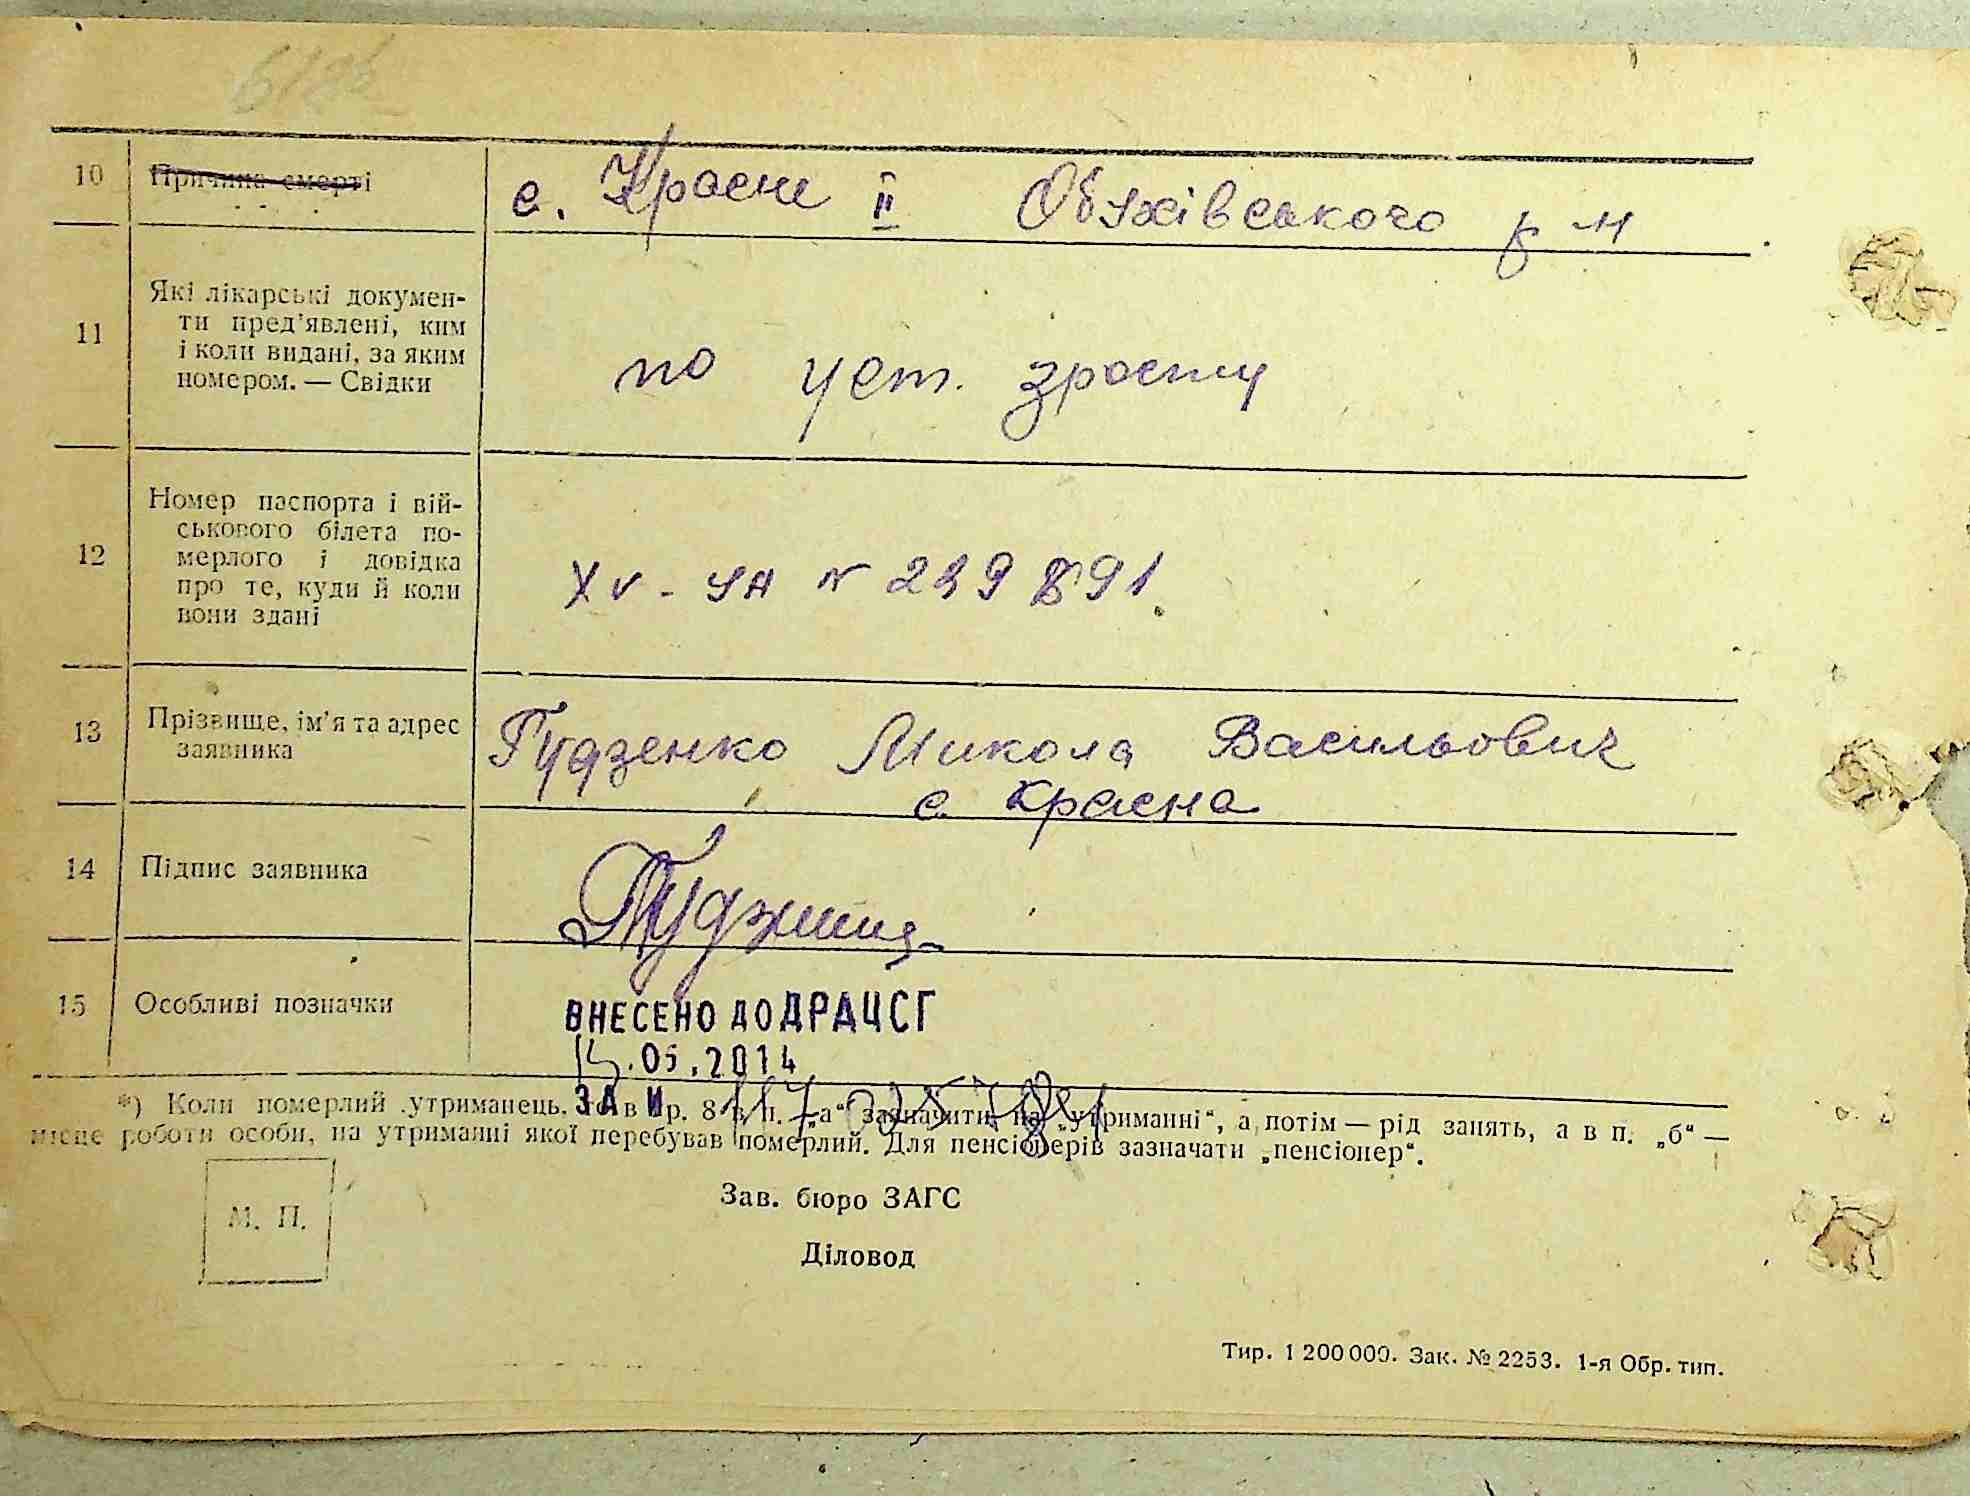 10 Причина смерті с. Красне ІІ Обухівського р н
11 Які лікарські докумен-
ти пред'явлені, ким
і коли видані, за яким
номером. — Свідки
по уст. зросту
12 Номер паспорта і вій-
ськового білета по-
мерлого і довідка
про те, куди й коли
вони здані
XV - УН N 239891.
13 Прізвище, ім'я та адрес
заявника
Гудзенко Микола Васильович
с. Красна
14 Підпис заявника
15 Особливі позначки
ВНЕСЕНО ДО ДРАЦСГ
.05.2014
ЗА №
*) Коли померлий утриманець, то в гр. 8 в п. „а“ зазначити „на утриманні“, а потім — рід занять, а в п. „б“ —
місце роботи особи, на утриманні якої перебував померлий. Для пенсіонерів зазначати „пенсіонер“.
М. П.
Зав. бюро ЗАГС
Діловод
Тир. 1 200 000. Зак. № 2253. 1-я Обр. тип.